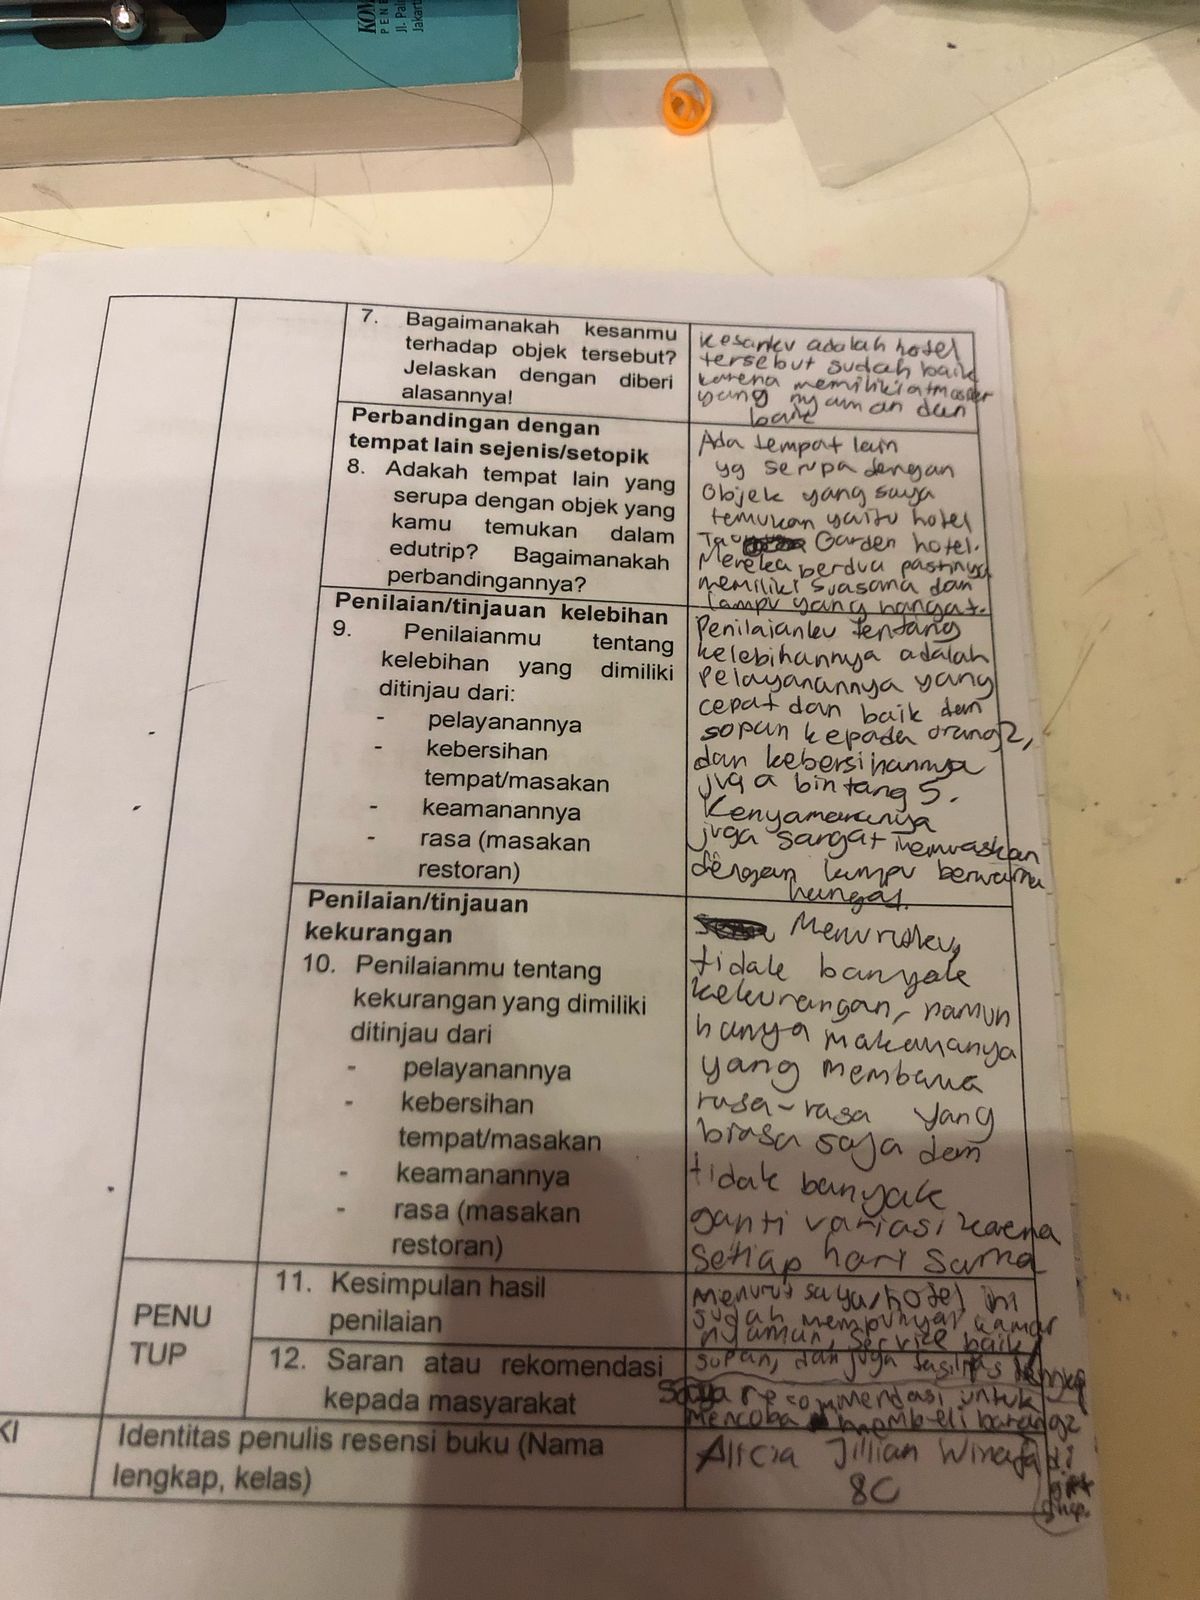 KOM
PENE
Jl. Pal
Jakart
7. Bagaimanakah kesanmu
terhadap objek tersebut?
Jelaskan dengan diberi
alasannya!
Kesanku adalah hotel
tersebut sudah baik
karena memiliki atmosfer
yang nyaman dan
baik
Perbandingan dengan
tempat lain sejenis/setopik
8. Adakah tempat lain yang
serupa dengan objek yang
kamu temukan dalam
edutrip? Bagaimanakah
perbandingannya?
Ada tempat lain
yg serupa dengan
Objek yang saya
temukan yaitu hotel
Garden hotel.
Mereka berdua pastinya
memiliki suasana dan
lampu yang hangat.
Penilaian/tinjauan kelebihan
9. Penilaianmu tentang
kelebihan yang dimiliki
ditinjau dari:
- pelayanannya
- kebersihan
tempat/masakan
- keamanannya
- rasa (masakan
restoran)
Penilaianku tentang
kelebihannya adalah
Pelayanannya yang
cepat dan baik dan
sopan kepada orang2,
dan kebersihannya
juga bintang 5.
Kenyamananya
juga sangat memuaskan
dengan lampu berwarna
hangat.
Penilaian/tinjauan
kekurangan
10. Penilaianmu tentang
kekurangan yang dimiliki
ditinjau dari
- pelayanannya
- kebersihan
tempat/masakan
- keamanannya
- rasa (masakan
restoran)
Menurutku,
tidak banyak
kekurangan, namun
hanya makananya
yang membawa
rasa-rasa yang
biasa saja dan
tidak banyak
ganti variasi karena
Setiap hari sama
PENU
TUP
11. Kesimpulan hasil
penilaian
Menurut saya, hotel ini
sudah mempunyai kamar
nyaman, service baik,
sopan, dan juga fasilitas lengkap
12. Saran atau rekomendasi
kepada masyarakat
Saya recommendasi untuk
mencoba membeli barang2
di
gift
shop.
KI
Identitas penulis resensi buku (Nama
lengkap, kelas)
Alicia Jillian Winata
8C